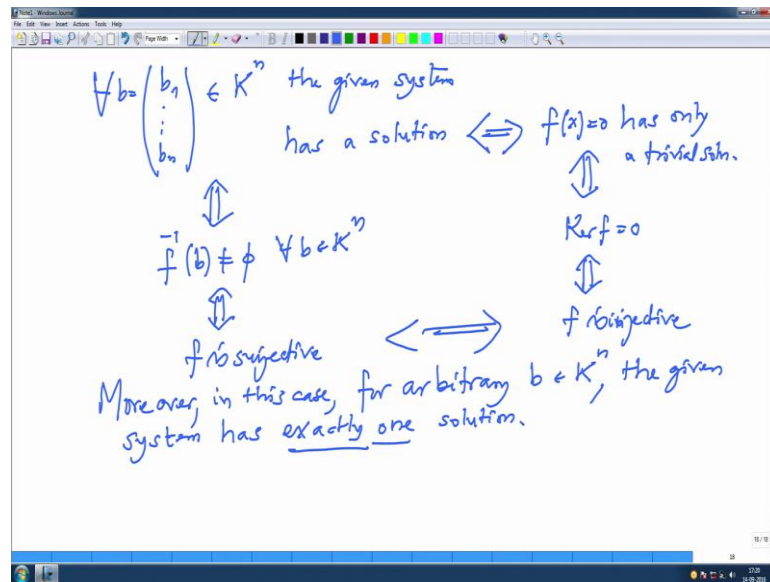 Note1 - Windows Journal
File Edit View Insert Actions Tools Help
Page Width
B I
∀ b = (b₁ ⋮ bₙ) ∈ Kⁿ the given system
has a solution ⇔ f(x)=0 has only
a trivial soln.
⇕ ⇕
f⁻¹(b) ≠ ϕ ∀ b ∈ Kⁿ Ker f = 0
⇕ ⇕
f is surjective ⇔ f is injective
Moreover, in this case, for arbitrary b ∈ Kⁿ, the given
system has exactly one solution.
18 / 18
18
17:20